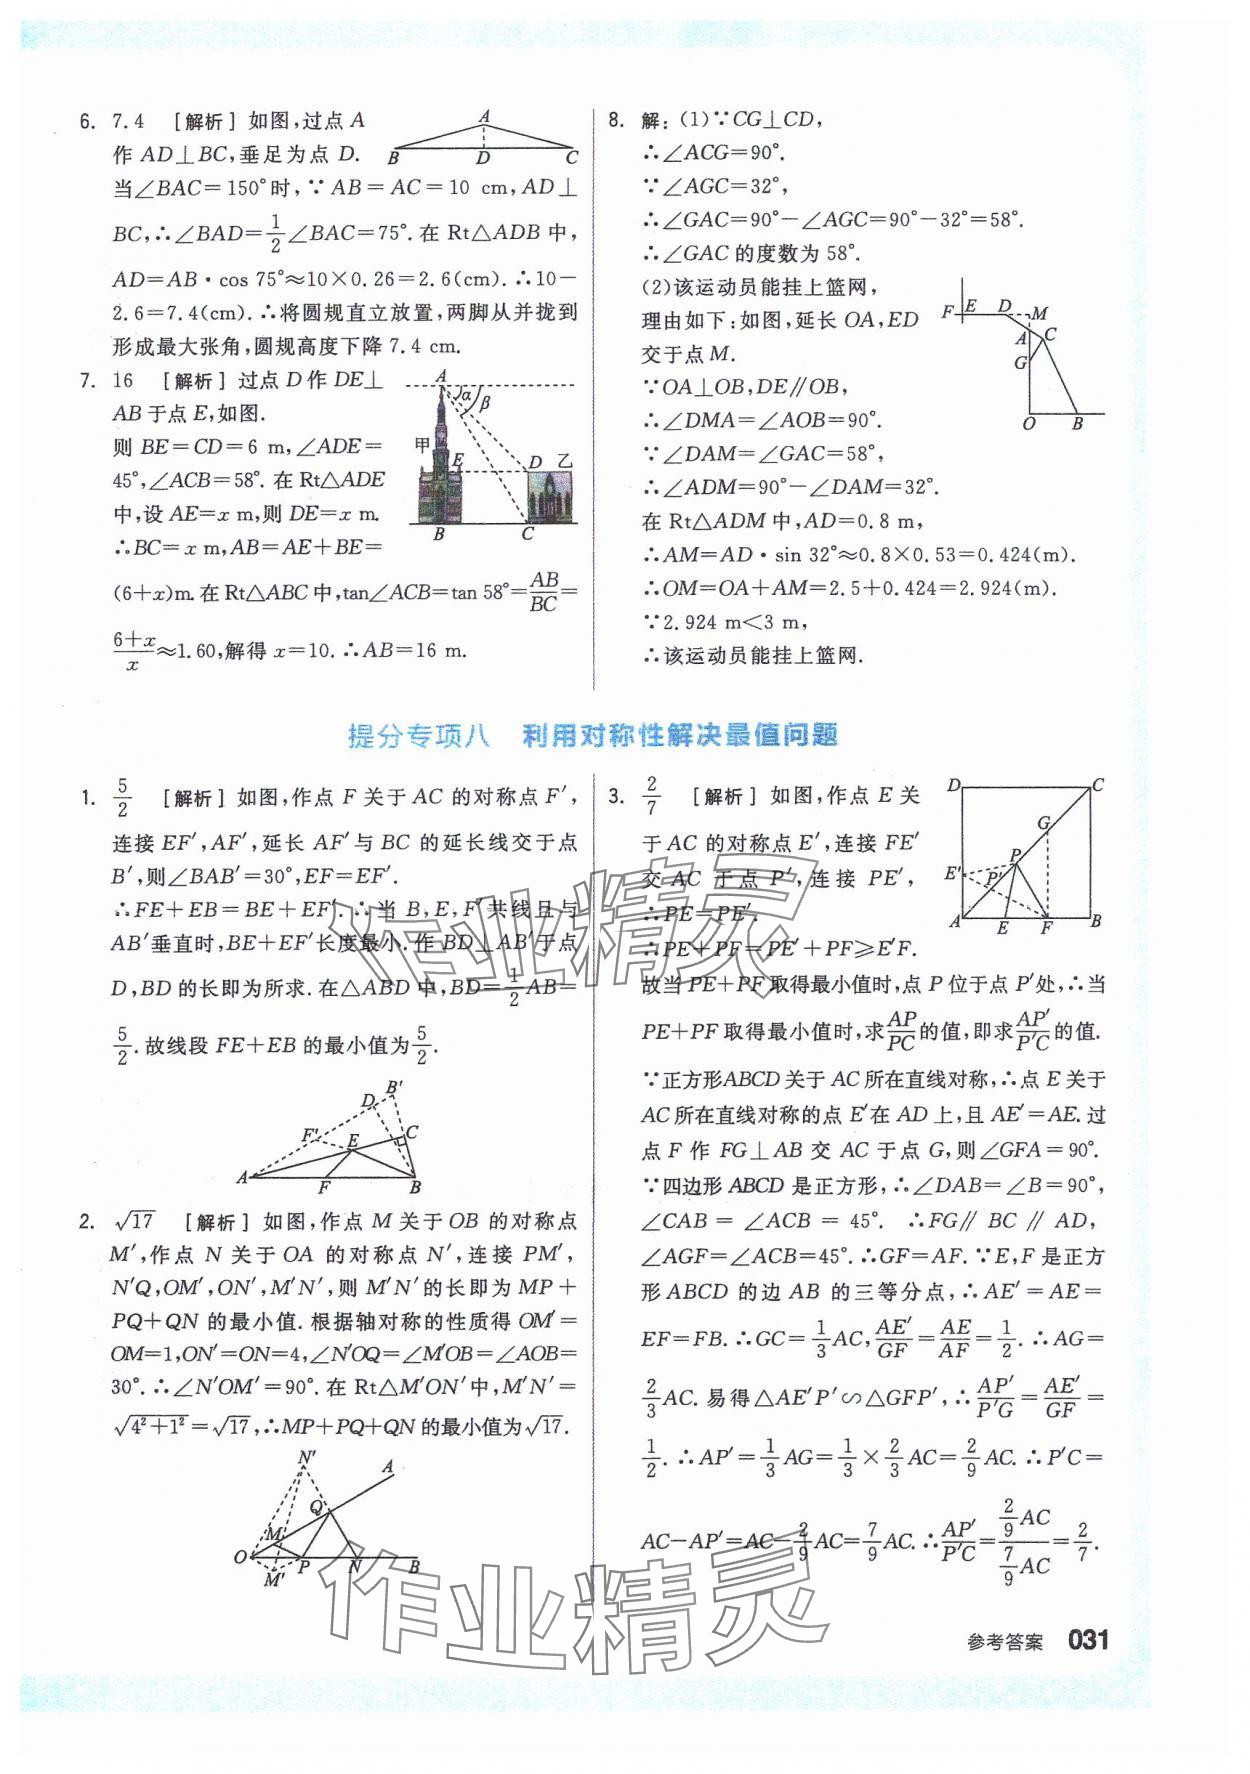 6. 7.4 [解析]如图,过点 A
作 AD⊥BC,垂足为点 D.
当∠BAC=150°时,∵AB=AC=10 cm,AD⊥
BC,∴∠BAD=1/2∠BAC=75°.在 Rt△ADB 中,
AD=AB·cos 75°≈10×0.26=2.6(cm).∴10-
2.6=7.4(cm).∴将圆规直立放置,两脚从并拢到
形成最大张角,圆规高度下降 7.4 cm.
A
B D C
7. 16 [解析]过点 D 作 DE⊥
AB 于点 E,如图.
则 BE=CD=6 m,∠ADE=
45°,∠ACB=58°.在 Rt△ADE
中,设 AE=x m,则 DE=x m.
∴BC=x m,AB=AE+BE=
(6+x)m.在 Rt△ABC 中,tan∠ACB=tan 58°=AB/BC=
(6+x)/x≈1.60,解得 x=10.∴AB=16 m.
A α β
甲 E D 乙
B C
8. 解:(1)∵CG⊥CD,
∴∠ACG=90°.
∵∠AGC=32°,
∴∠GAC=90°-∠AGC=90°-32°=58°.
∴∠GAC 的度数为 58°.
(2)该运动员能挂上篮网,
理由如下:如图,延长 OA,ED
交于点 M.
∵OA⊥OB,DE∥OB,
∴∠DMA=∠AOB=90°.
∵∠DAM=∠GAC=58°,
∴∠ADM=90°-∠DAM=32°.
在 Rt△ADM 中,AD=0.8 m,
∴AM=AD·sin 32°≈0.8×0.53=0.424(m).
∴OM=OA+AM=2.5+0.424=2.924(m).
∵2.924 m<3 m,
∴该运动员能挂上篮网.
F E D M
A C
G
O B
提分专项八 利用对称性解决最值问题
1. 5/2 [解析]如图,作点 F 关于 AC 的对称点 F′,
连接 EF′,AF′,延长 AF′与 BC 的延长线交于点
B′,则∠BAB′=30°,EF=EF′.
∴FE+EB=BE+EF′.∴当 B,E,F′共线且与
AB′垂直时,BE+EF′长度最小.作 BD⊥AB′于点
D,BD 的长即为所求.在△ABD 中,BD=1/2AB=
5/2.故线段 FE+EB 的最小值为5/2.
B′
D
F′ E C
A F B
2. √17 [解析]如图,作点 M 关于 OB 的对称点
M′,作点 N 关于 OA 的对称点 N′,连接 PM′,
N′Q,OM′,ON′,M′N′,则 M′N′的长即为 MP+
PQ+QN 的最小值.根据轴对称的性质得 OM′=
OM=1,ON′=ON=4,∠N′OQ=∠M′OB=∠AOB=
30°.∴∠N′OM′=90°.在 Rt△M′ON′中,M′N′=
√(4²+1²)=√17,∴MP+PQ+QN 的最小值为√17.
N′ A
Q
M
O P N B
M′
3. 2/7 [解析]如图,作点 E 关
于 AC 的对称点 E′,连接 FE′
交 AC 于点 P′,连接 PE′,
∴PE=PE′.
∴PE+PF=PE′+PF≥E′F.
故当 PE+PF 取得最小值时,点 P 位于点 P′处,∴当
PE+PF 取得最小值时,求AP/PC的值,即求AP′/P′C的值.
∵正方形ABCD 关于 AC 所在直线对称,∴点 E 关于
AC 所在直线对称的点 E′在 AD 上,且 AE′=AE.过
点 F 作 FG⊥AB 交 AC 于点 G,则∠GFA=90°.
∵四边形 ABCD 是正方形,∴∠DAB=∠B=90°,
∠CAB=∠ACB=45°. ∴FG∥BC∥AD,
∠AGF=∠ACB=45°.∴GF=AF.∵E,F 是正方
形 ABCD 的边 AB 的三等分点,∴AE′=AE=
EF=FB.∴GC=1/3AC,AE′/GF=AE/AF=1/2.∴AG=
2/3AC.易得△AE′P′∽△GFP′,∴AP′/P′G=AE′/GF=
1/2.∴AP′=1/3AG=1/3×2/3AC=2/9AC.∴P′C=
AC-AP′=AC-2/9AC=7/9AC.∴AP′/P′C=(2/9AC)/(7/9AC)=2/7.
D C
G
P
E′ P′
A E F B
作业精灵
作业精灵
参考答案 031